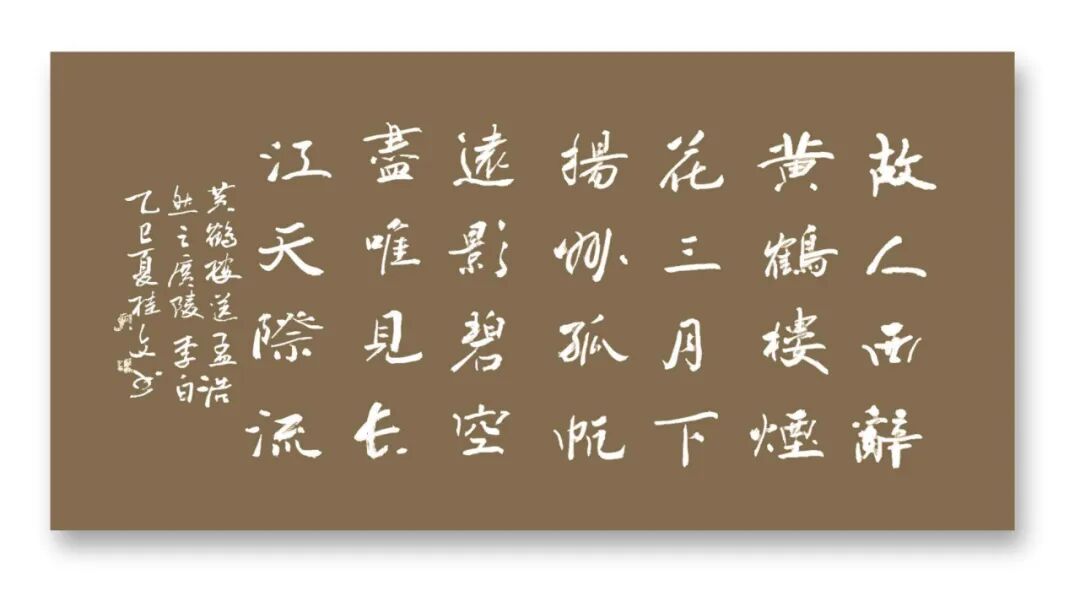 故人西辭
黄鶴樓煙
花三月下
揚州孤帆
遠影碧空
盡唯見長
江天際流
黄鶴樓送孟浩
然之廣陵 李白
乙巳夏桂文